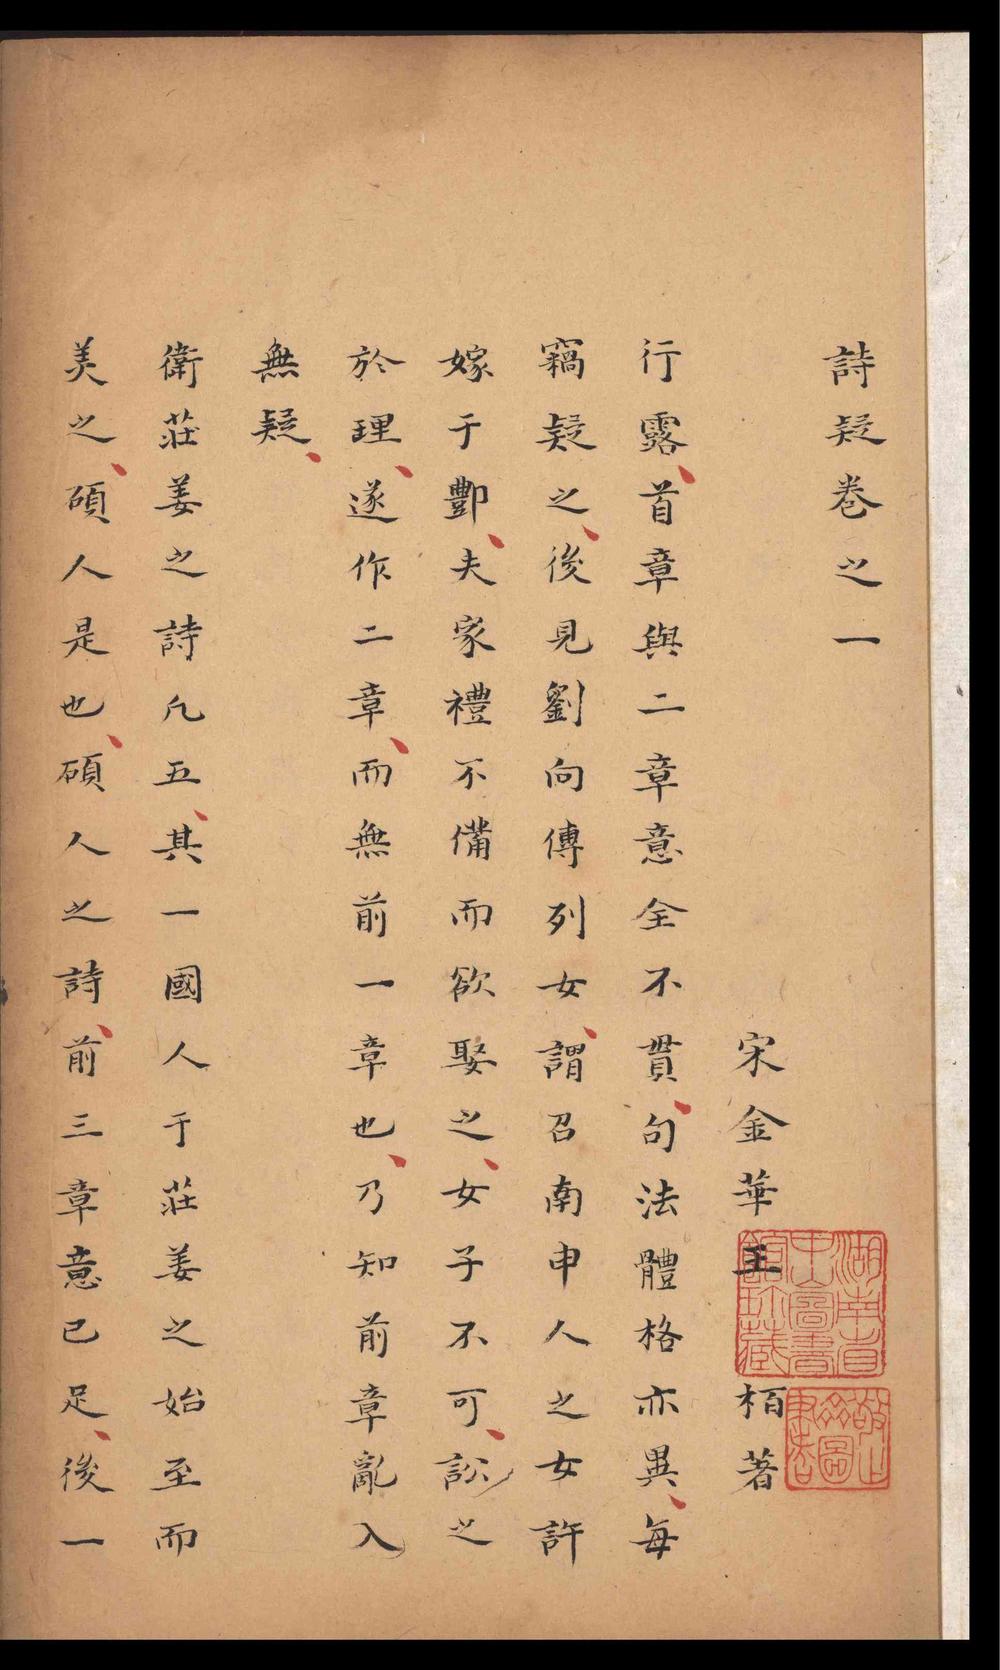 詩疑卷之一
宋金華王柏著
行露首章與二章意全不貫句法體格亦異每
竊疑之後見劉向傳列女謂召南申人之女許
嫁于酆夫家禮不備而欲娶之女子不可訟之
於理遂作二章而無前一章也乃知前章亂入
無疑
衛莊姜之詩凡五其一國人于莊姜之始至而
美之碩人是也碩人之詩前三章意已足後一
湖南省
中山圖書
館珍藏